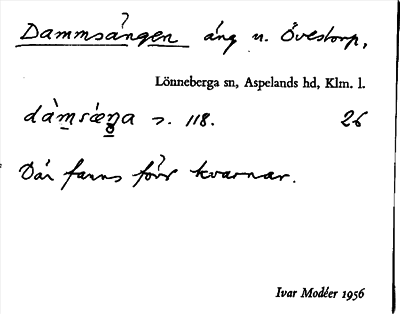 Dammsängen äng n. Övestorp,
Lönneberga sn, Aspelands hd, Klm. l.
dàmsæŋa s. 118. 26
Där fanns förr kvarnar.
Ivar Modéer 1956